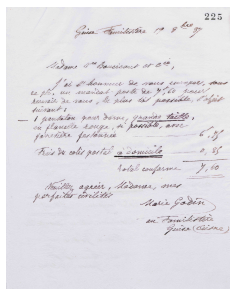 225
Guise Familistère 19 8bre 97
Madame Vve Boucicaut et Cie,
J'ai l'honneur de vous envoyer, sous
ce pli, un mandat poste de 7,60 pour
envoi de vous, le plus tôt possible, l'objet
suivant :
1 pantalon pour dame, grande taille,
en flanelle rouge, si possible, avec
festonnée 6.75
Frais de colis postal à domicile 0,85
total conforme 7,60
Veuillez agréer, Mesdames, mes
parfaites civilités
Marie Godin
au Familistère
Guise (Aisne)